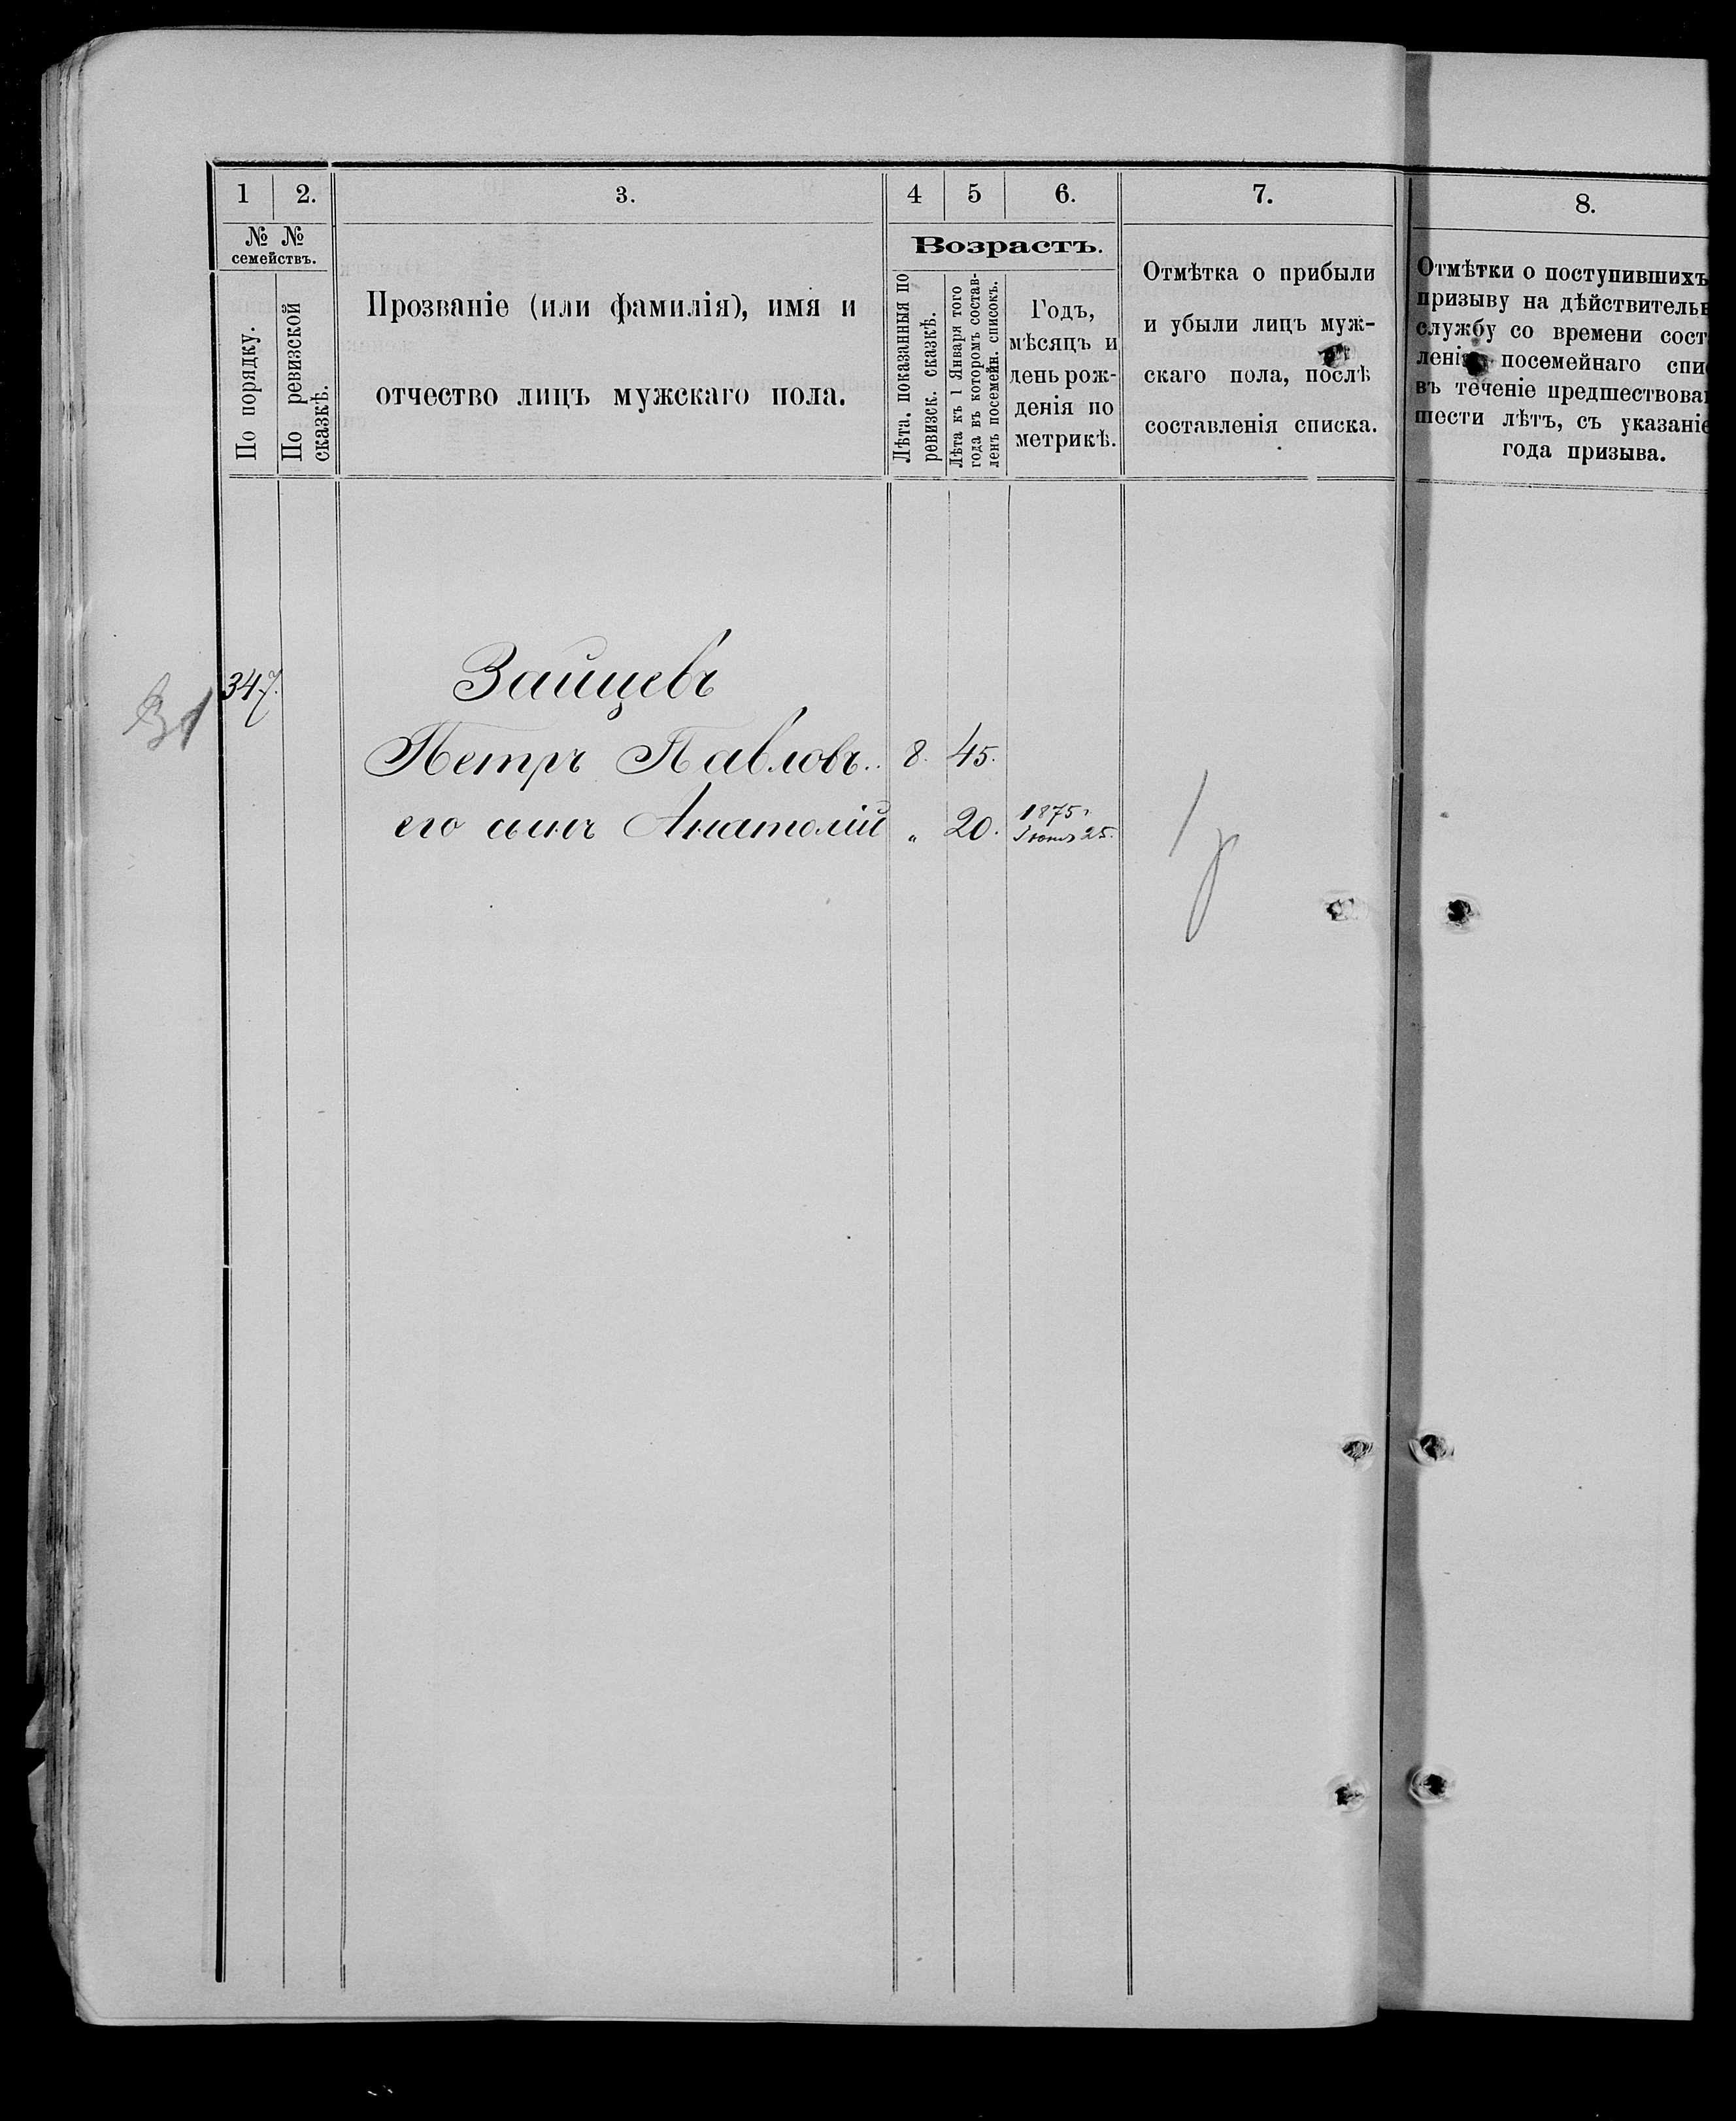 1 2. 3. 4 5 6. 7. 8.
№ №
семействъ.
По порядку.
По ревизской
сказкѣ.
Прозваніе (или фамилія), имя и
отчество лицъ мужскаго пола.
Возрастъ.
Лѣта. показанныя по
ревизск. сказкѣ.
Лѣта къ 1 Января того
года въ которомъ состав-
ленъ посемейн. списокъ.
Годъ,
мѣсяцъ и
день рож-
денія по
метрикѣ.
Отмѣтка о прибыли
и убыли лицъ муж-
скаго пола, послѣ
составленія списка.
Отмѣтки о поступившихъ
призыву на дѣйствительн
службу со времени сост
леніи посемейнаго спи
въ теченіе предшествова
шести лѣтъ, съ указаніе
года призыва.
347. Зайцевъ
Петръ Павловъ.. 8. 45.
его сынъ Анатолій „ 20. 1875г
Іюнь 25.